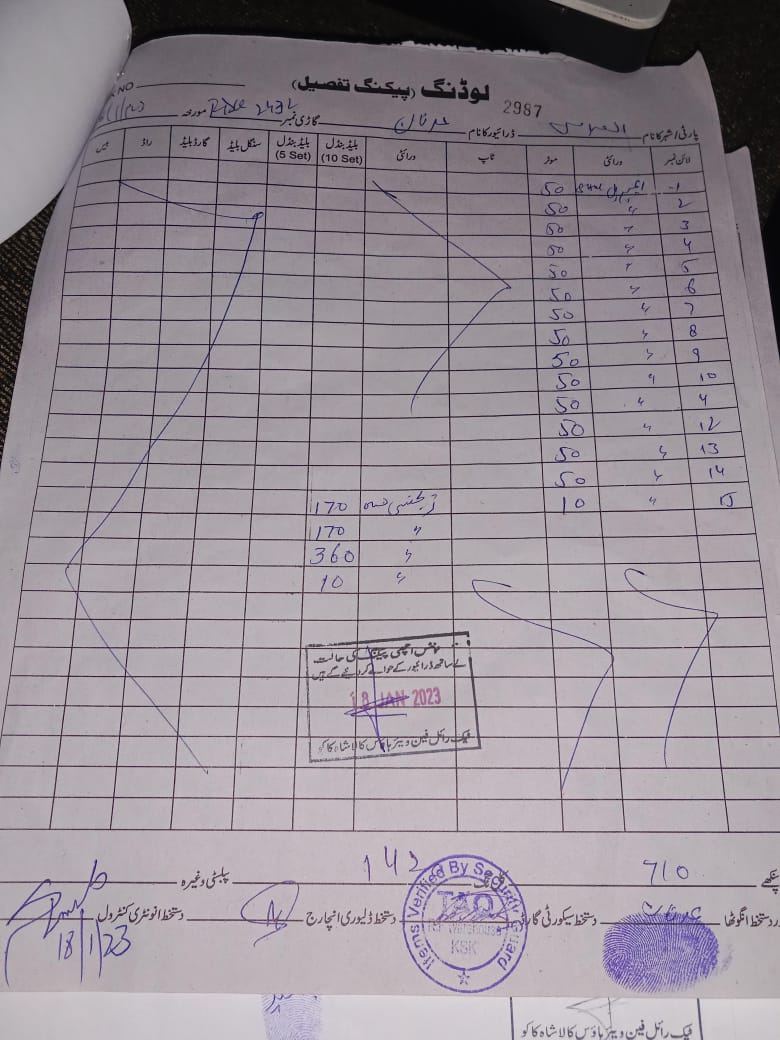 لوڈنگ (پیکنگ تفصیل)
2987
NO
پارٹی/شہر کا نام ڈرائیور کا نام عرفان گاڑی نمبر مورخہ
لائن نمبر ورائٹی موٹر ٹاپ ورائٹی بلیڈ بنڈل (10 Set) بلیڈ بنڈل (5 Set) سنگل بلیڈ گارڈ بلیڈ راڈ
1 50
2 〃 50
3 〃 50
4 〃 50
5 〃 50
6 〃 50
7 〃 50
8 〃 50
9 〃 50
10 〃 50
〃 50
12 〃 50
13 〃 50
14 〃 50
15 〃 10 170
〃 170
〃 360
〃 10
اچھی پیکنگ کی حالت
کے ساتھ ڈرائیور کے حوالے کر دیئے گئے ہیں
18 JAN 2023
فیک رائل فین ویئر ہاؤس کالا شاہ کاکو
پنکھے 710 142 پبلسٹی وغیرہ
دستخط انگوٹھا دستخط سیکورٹی گارڈ دستخط ڈلیوری انچارج دستخط انوینٹری کنٹرول
18/1/23
Items Verified By Security Guard
TAQ
RF Warehouse
KSK
فیک رائل فین ویئر ہاؤس کالا شاہ کاکو